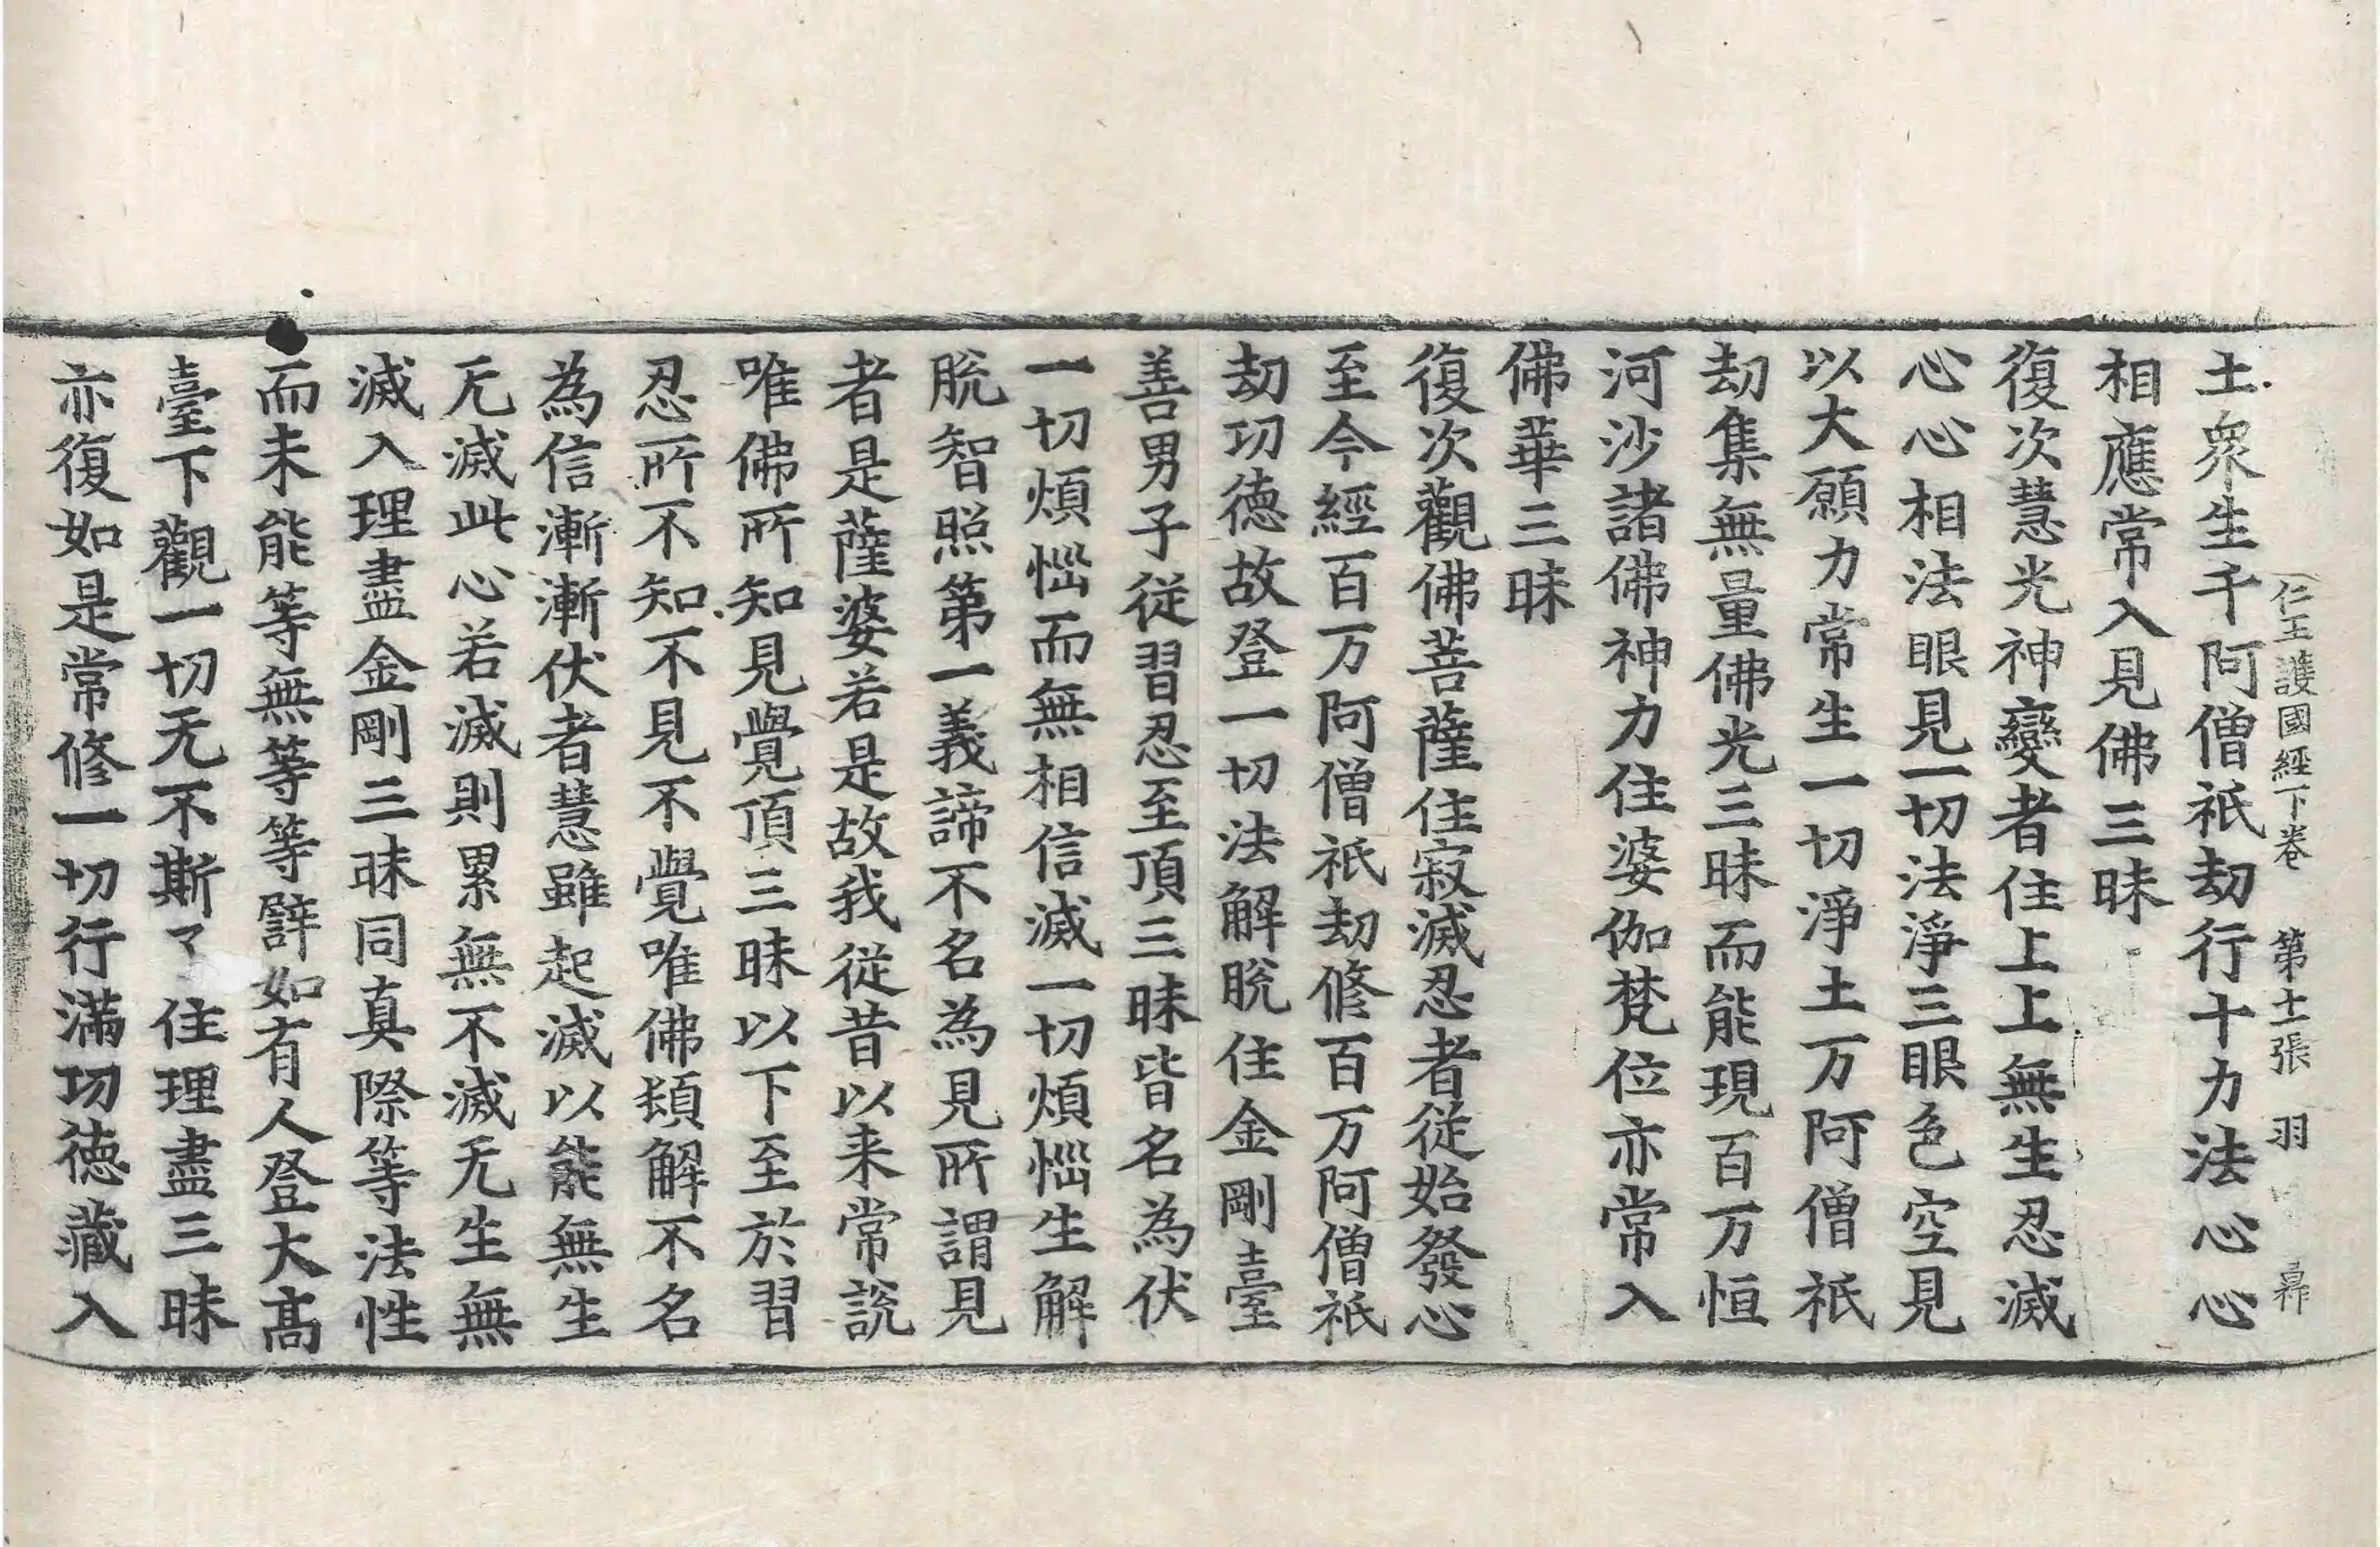 仁王護國經下卷　第十一張　羽
土衆生千阿僧祇劫行十力法心心
相應常入見佛三昧
復次慧光神變者住上上無生忍滅
心心相法眼見一切法淨三眼色空見
以大願力常生一切淨土万阿僧祇
劫集無量佛光三昧而能現百万恒
河沙諸佛神力住婆伽梵位亦常入
佛華三昧
復次觀佛菩薩住寂滅忍者從始發心
至今經百万阿僧祇劫修百万阿僧祇
劫功德故登一切法解脫住金剛臺
善男子從習忍至頂三昧皆名為伏
一切煩惱而無相信滅一切煩惱生解
脫智照第一義諦不名為見所謂見
者是薩婆若是故我從昔以来常說
唯佛所知見覺頂三昧以下至於習
忍所不知不見不覺唯佛頓解不名
為信漸漸伏者慧雖起滅以能無生
无滅此心若滅則累無不滅无生無
滅入理盡金剛三昧同真際等法性
而未能等無等等譬如有人登大高
臺下觀一切无不斯了住理盡三昧
亦復如是常修一切行滿功德藏入